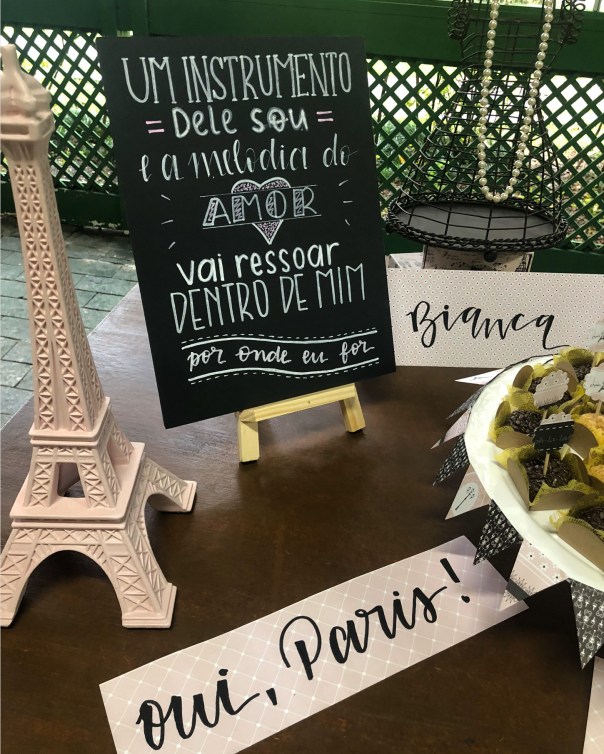 UM INSTRUMENTO
= Dele sou =
e a melodia do
AMOR
vai ressoar
DENTRO DE MIM
por onde eu for
Bianca
oui, Paris!